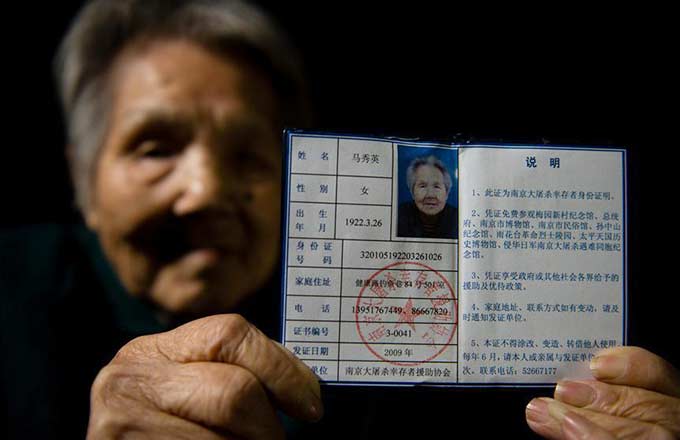 姓 名 马秀英
性 别 女
出 生 年 月 1922.3.26
身 份 证 号 码 320105192203261026
家庭住址 84号501室
电 话 13951767449、86667820
证书编号 3-0041
发证日期 2009 年
单位 南京大屠杀幸存者援助协会
说 明
1、此证为南京大屠杀幸存者身份证明。
2、凭证免费参观梅园新村纪念馆、总统
府、南京市博物馆、南京市民俗馆、孙中山
纪念馆、雨花台革命烈士陵园、太平天国历
史博物馆、侵华日军南京大屠杀遇难同胞纪
念馆。
3、凭证享受政府或其他社会各界给予的
援助及优待政策。
4、家庭地址、联系方式如有变动，请及
时通知发证单位。
5、本证不得涂改、变造、转借他人使用
每年 6 月，请本人或亲属与发证单位
次。联系电话：52667177